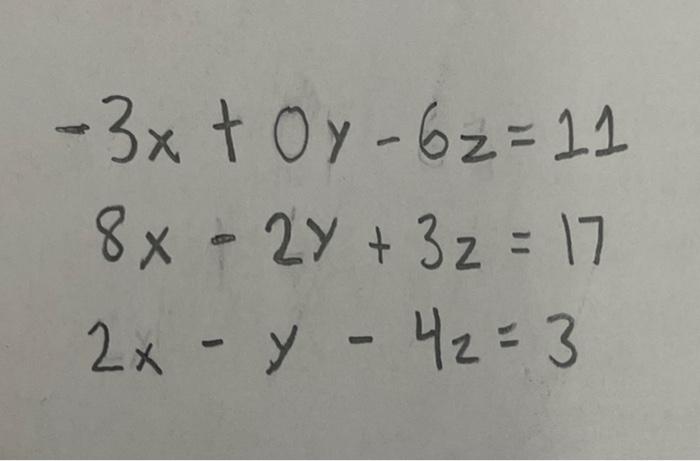 -3x + 0y - 6z = 11
8x - 2y + 3z = 17
2x - y - 4z = 3